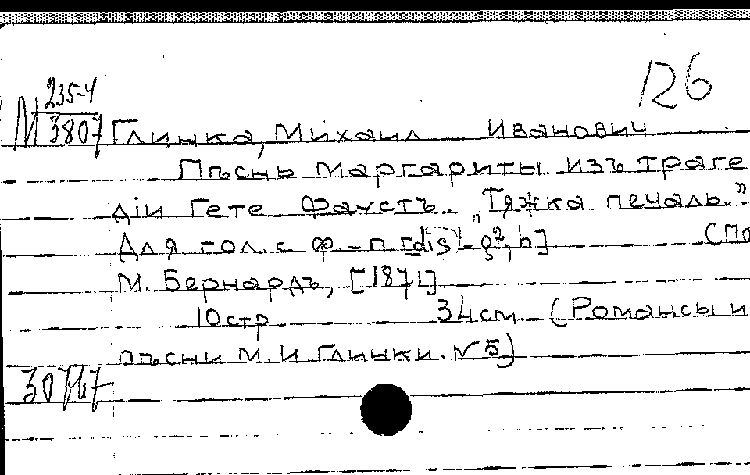 235-4
126
М 3807
Глинка, Михаил Иванович
Пѣснь Маргариты изъ траге
діи Гете Фаустъ. „Тяжка печаль."
Для гол. с ф-п [dis¹-g², h] (По
М. Бернардъ, [1871]
10 стр 34 см (Романсы и
пѣсни М. И Глинки. № 5)
30747